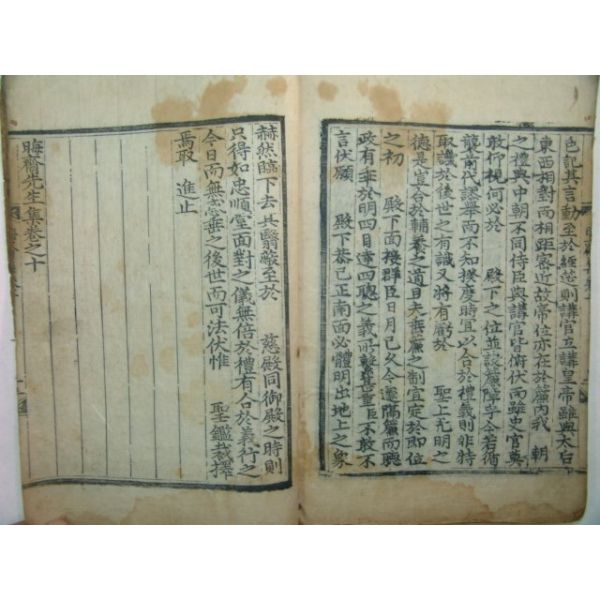 色記其言動至於經筵則講官立講皇帝雖與太后
東西相對而相距密近故帝位亦在於簾內我 朝
之禮與中朝不同侍臣與講官皆俯伏而雖史官莫
敢仰視何必於 殿下之位並設簾障乎今若循
襲前代謬舉而不知揆度時宜以合於禮義則非特
取譏於後世之有識又將有虧於 聖上光明之
德是豈合於輔養之道且夫垂簾之制宜定於即位
之初 殿下面接群臣日月已久今遽隔簾而聽
政有乖於明四目達四聰之義所繫甚重臣不敢不
言伏願 殿下恭己正南面必體明出地上之象
赫然臨下去其翳蔽至於 慈殿同御殿之時則
只得如忠順堂面對之儀無倍於禮有合於義行之
今日而無忝垂之後世而可法伏惟 聖鑑裁擇
焉取 進止
晦齋先生集卷之十